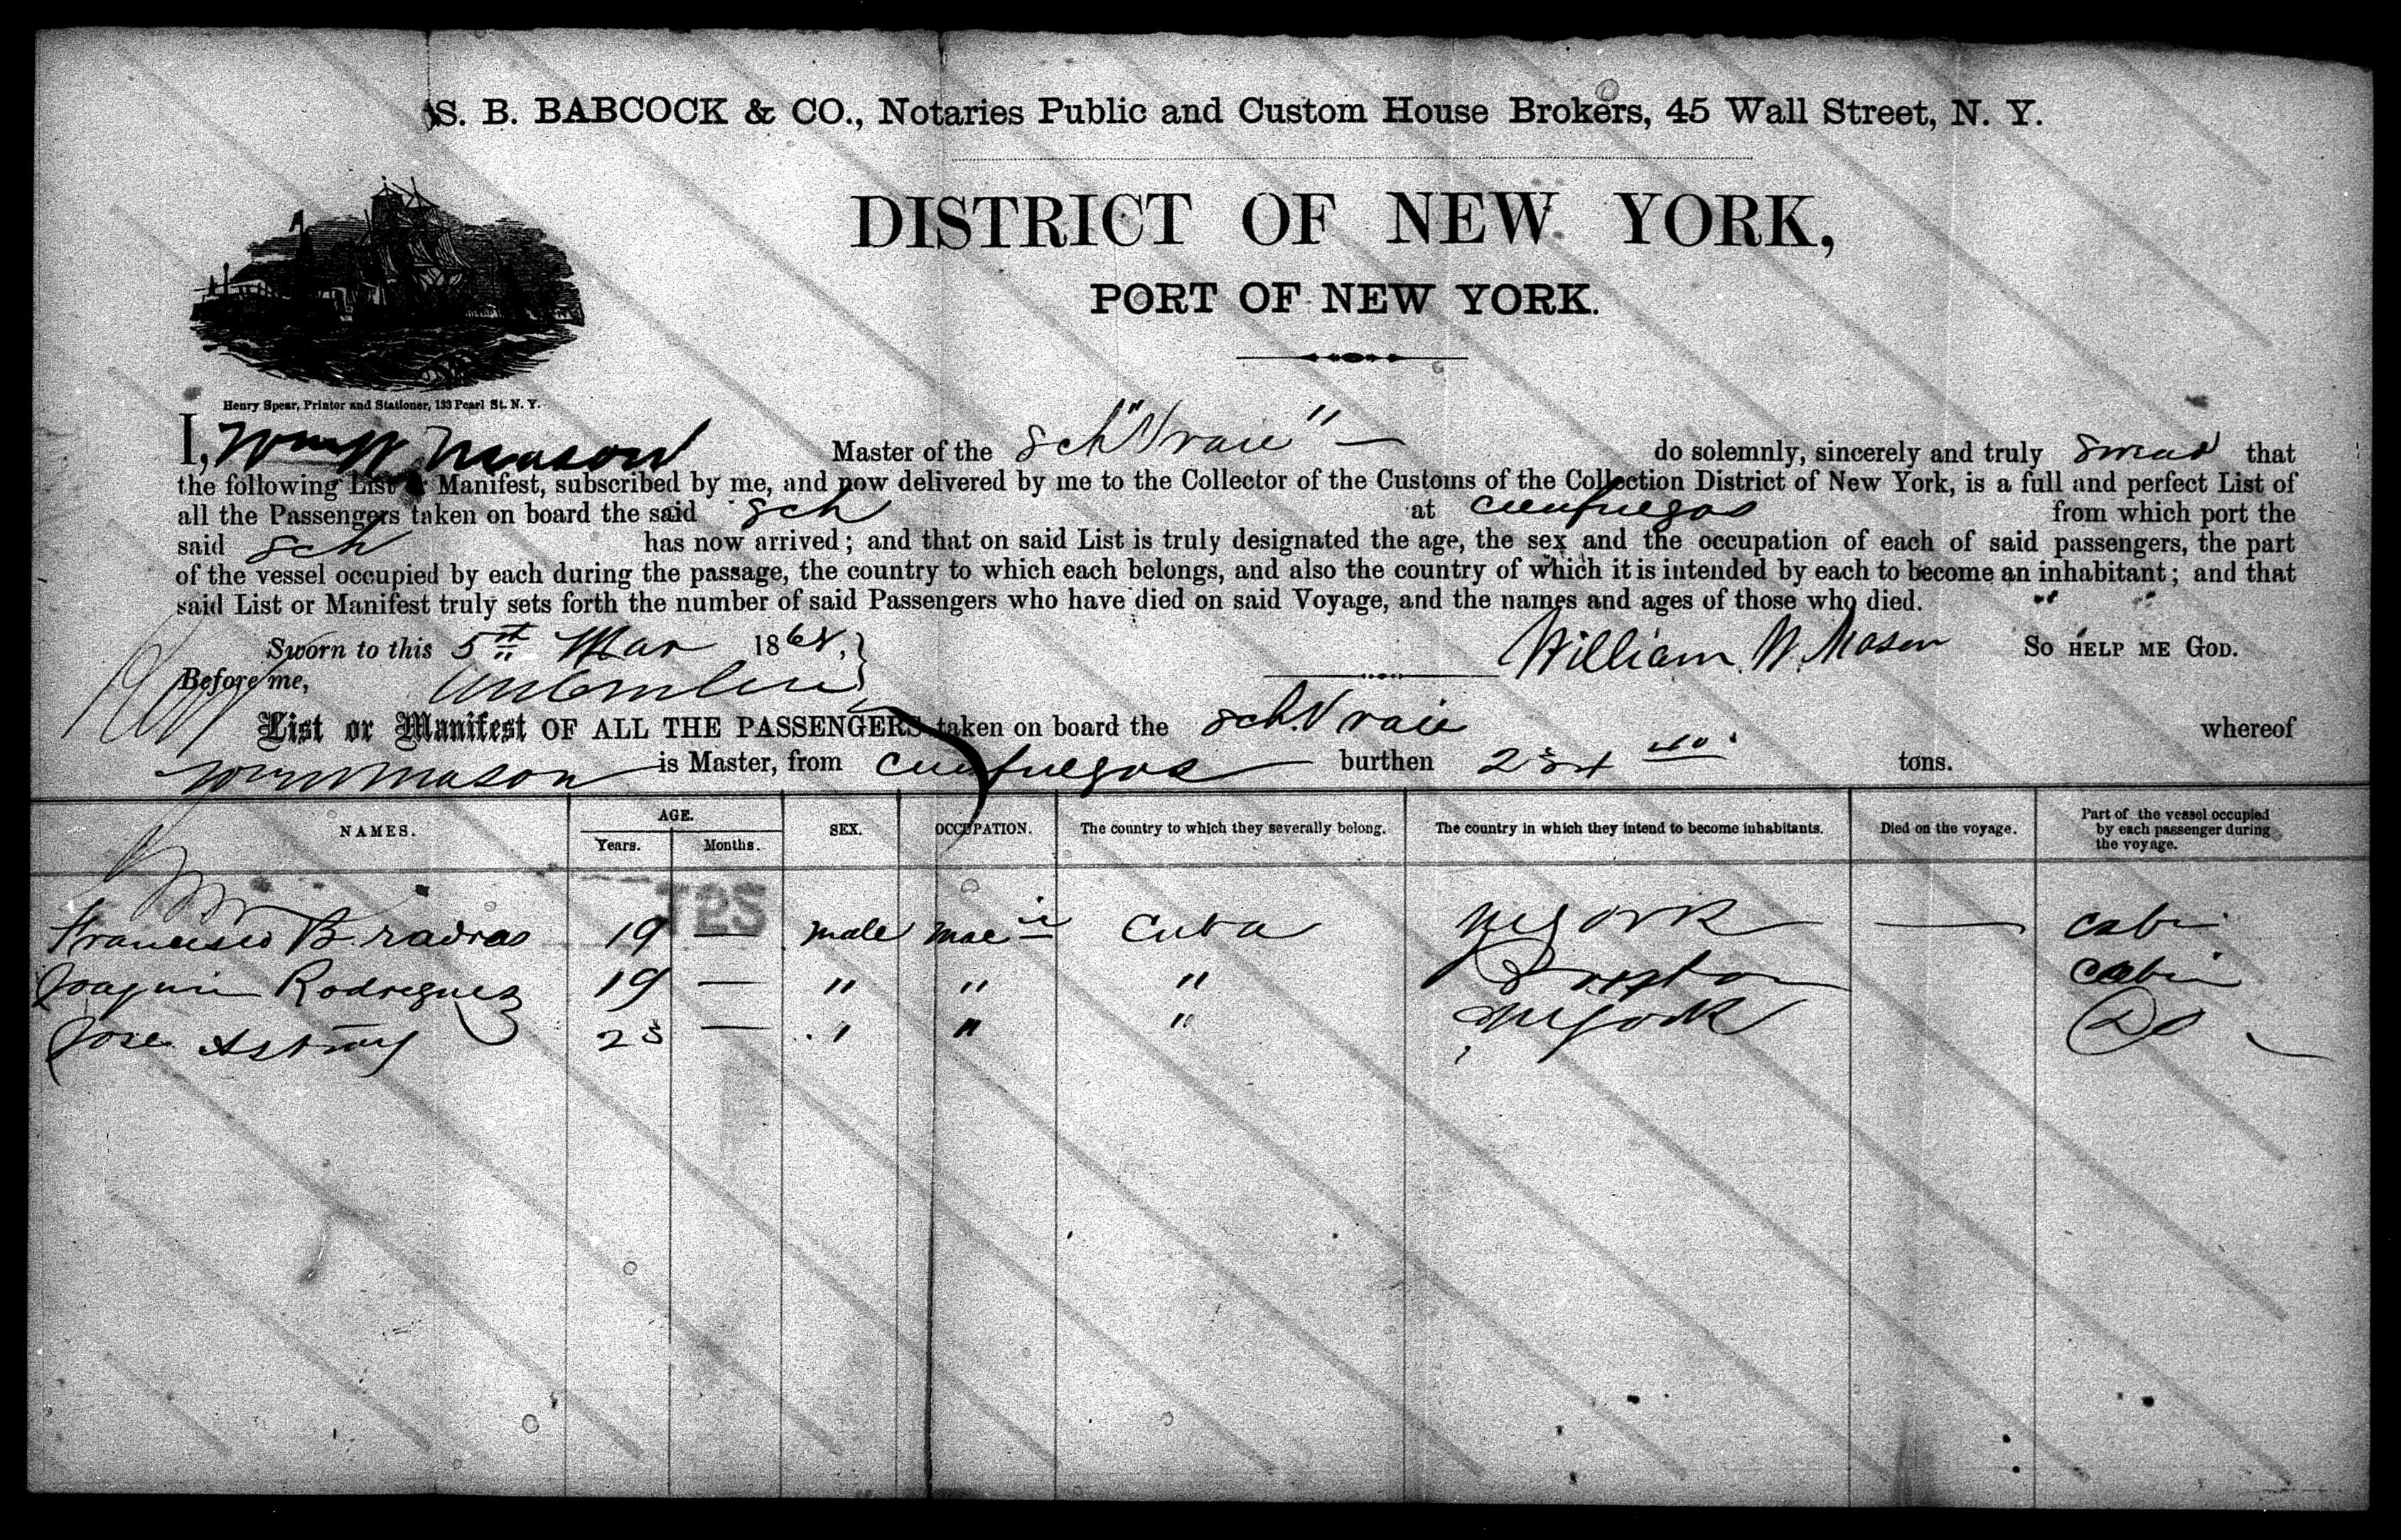 S. B. BABCOCK & CO., Notaries Public and Custom House Brokers, 45 Wall Street, N. Y.
DISTRICT OF NEW YORK,
PORT OF NEW YORK.
Henry Spear, Printer and Stationer, 133 Pearl St. N. Y.
I, Wm W Mason Master of the Sch "Vraie" — do solemnly, sincerely and truly swear that
the following List or Manifest, subscribed by me, and now delivered by me to the Collector of the Customs of the Collection District of New York, is a full and perfect List of
all the Passengers taken on board the said Sch at Cienfuegos from which port the
said Sch has now arrived; and that on said List is truly designated the age, the sex and the occupation of each of said passengers, the part
of the vessel occupied by each during the passage, the country to which each belongs, and also the country of which it is intended by each to become an inhabitant; and that
said List or Manifest truly sets forth the number of said Passengers who have died on said Voyage, and the names and ages of those who died.
Sworn to this 5 Mar 1868, William W. Mason SO HELP ME GOD.
Before me,
List or Manifest OF ALL THE PASSENGERS taken on board the Sch. Vraie whereof
Wm W Mason is Master, from Cienfuegos burthen 234 tons.
NAMES. AGE. Years. Months. SEX. OCCUPATION. The country to which they severally belong. The country in which they intend to become inhabitants. Died on the voyage. Part of the vessel occupied by each passenger during the voyage.
Francisco B 19 — male Cuba N York — cabin
Joaquin Rodreguez 19 — " " " cabin
Jose 23 — " " " N York Do